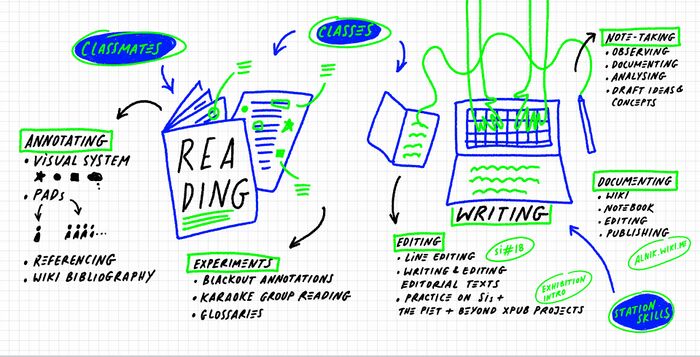 CLASSMATES
CLASSES
ANNOTATING
• VISUAL SYSTEM
• PADs
• REFERENCING
• WIKI BIBLIOGRAPHY
REA
DING
EXPERIMENTS
• BLACKOUT ANNOTATIONS
• KARAOKE GROUP READING
• GLOSSARIES
WRITING
EDITING
• LINE EDITING
• WRITING & EDITING
EDITORIAL TEXTS
• PRACTICE ON SIs +
THE PIET + BEYOND XPUB PROJECTS
SI#18
EXHIBITION
INTRO
NOTE-TAKING
• OBSERVING
• DOCUMENTING
• ANALYSING
• DRAFT IDEAS &
CONCEPTS
DOCUMENTING
• WIKI
• NOTEBOOK
• EDITING
• PUBLISHING
ALNIK.WIKI.ME
STATION
SKILLS